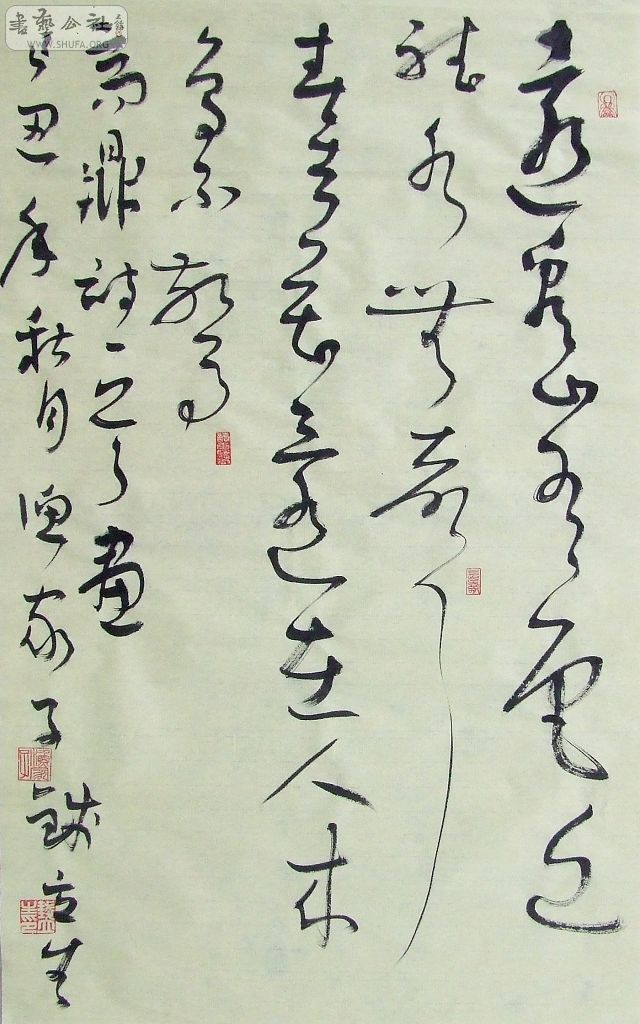 書藝公社
WWW.SHUFA.ORG
遠看山有色近
聽水無聲
春去花還在人來
鳥不驚
高鼎詩畫
丑年秋月漁家子